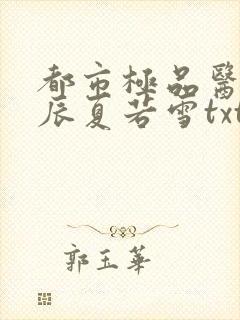 都市極品醫
辰夏若雪txt
郭玉華